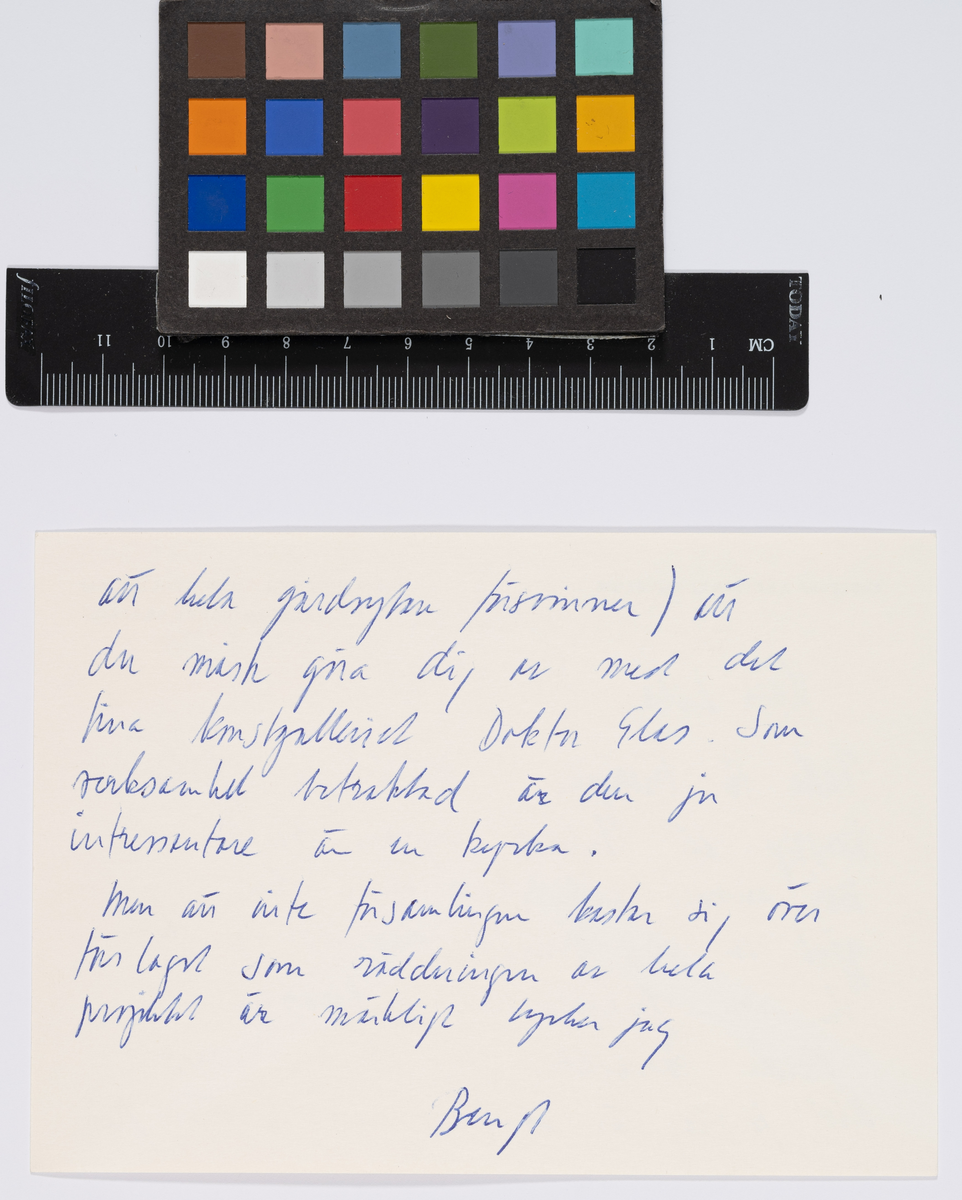 TODAY
CM 1 2 3 4 5 6 7 8 9 10 11
att hela gårdsytan försvinner) att
du måste göra dig av med det
fina konstgalleriet Doktor Glas. Som
verksamhet betraktad är den ju
intressantare än en kyrka.
Men att inte församlingen kastar sig över
förslaget som räddningen av hela
projektet är märkligt tycker jag
Bengt